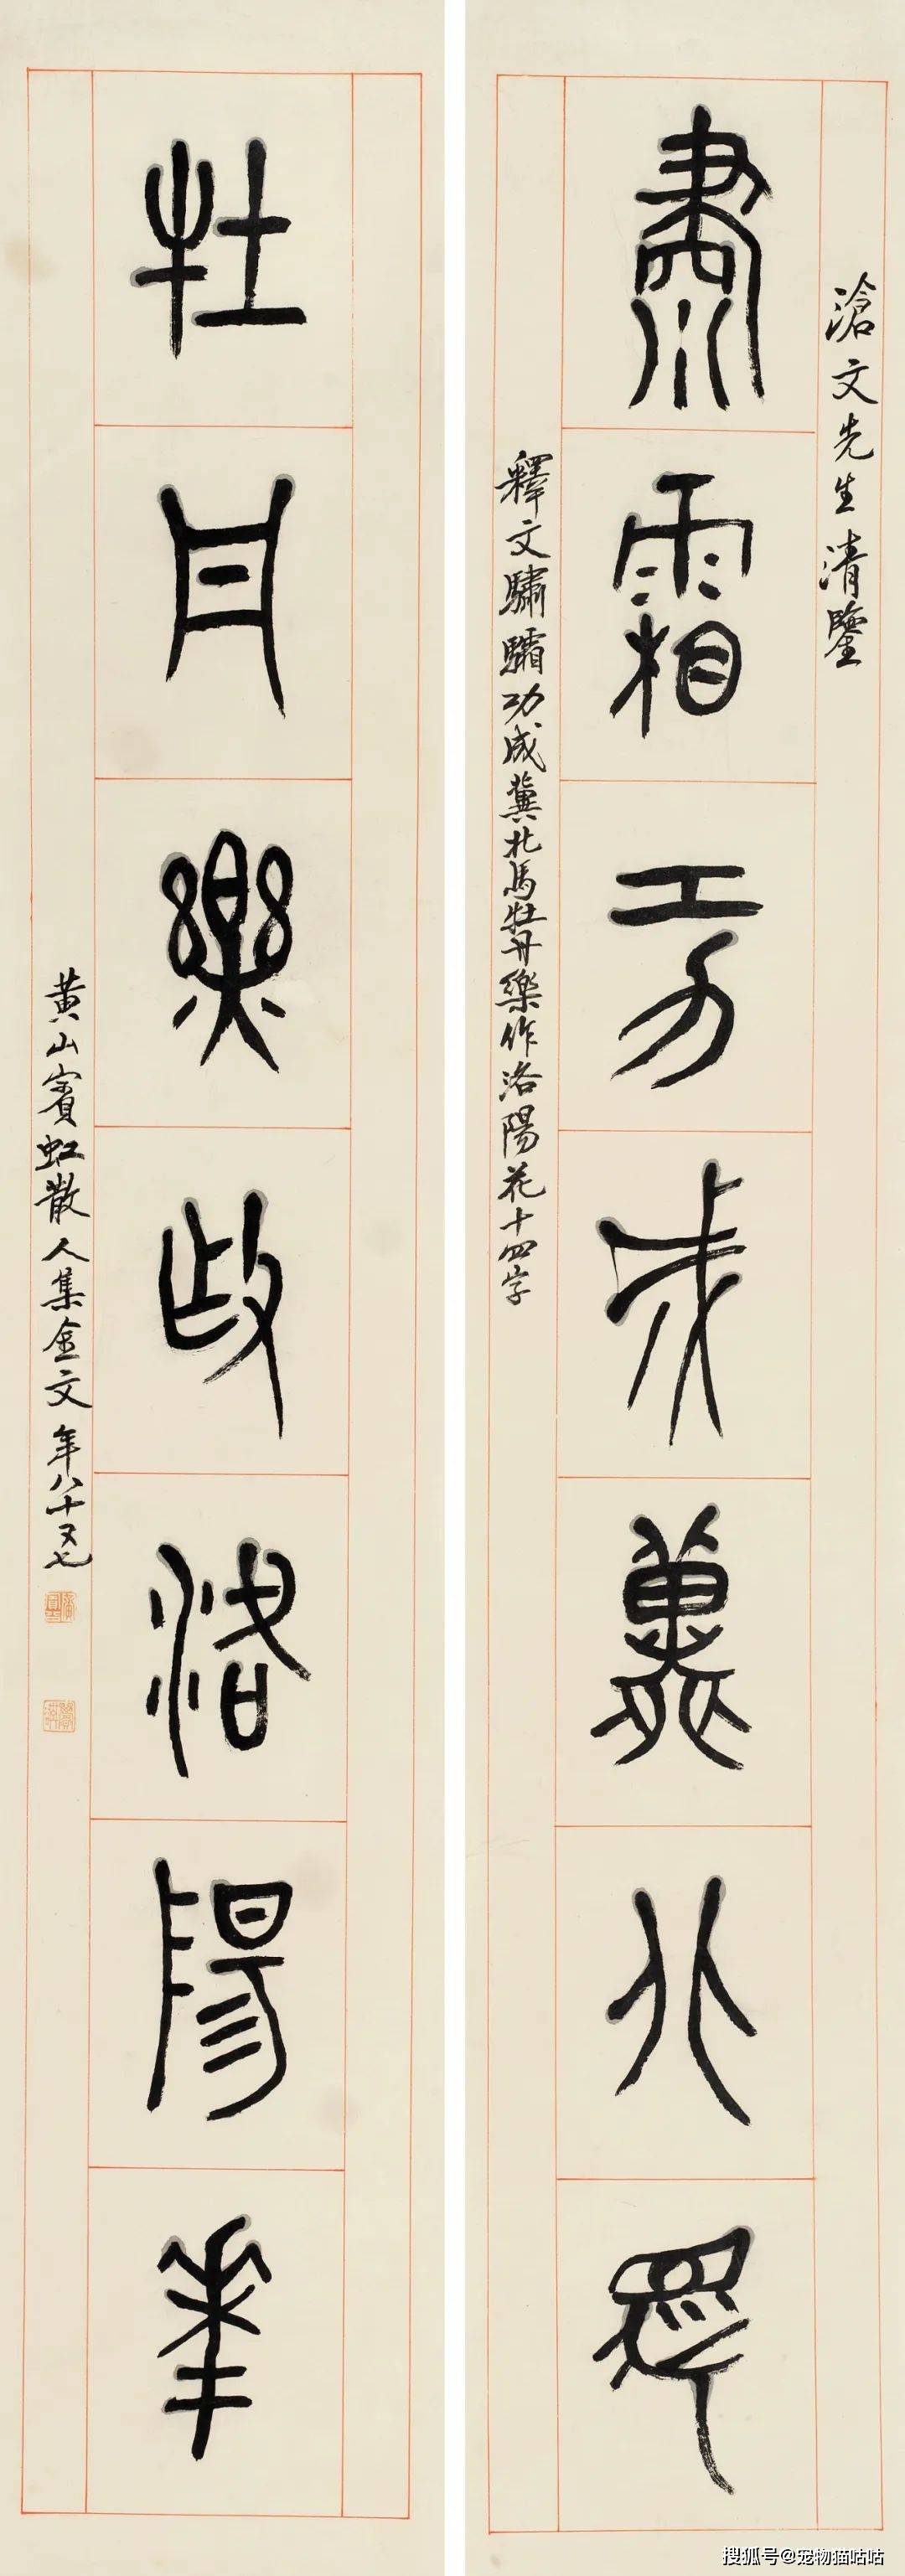 滄文先生清鑒
肅霜工成冀北馬
釋文驌驦功成冀北馬牡丹樂作洛陽花十四字
牡丹樂乍洛陽華
黃山賓虹散人集金文年八十又七
搜狐号@宠物猫咕咕